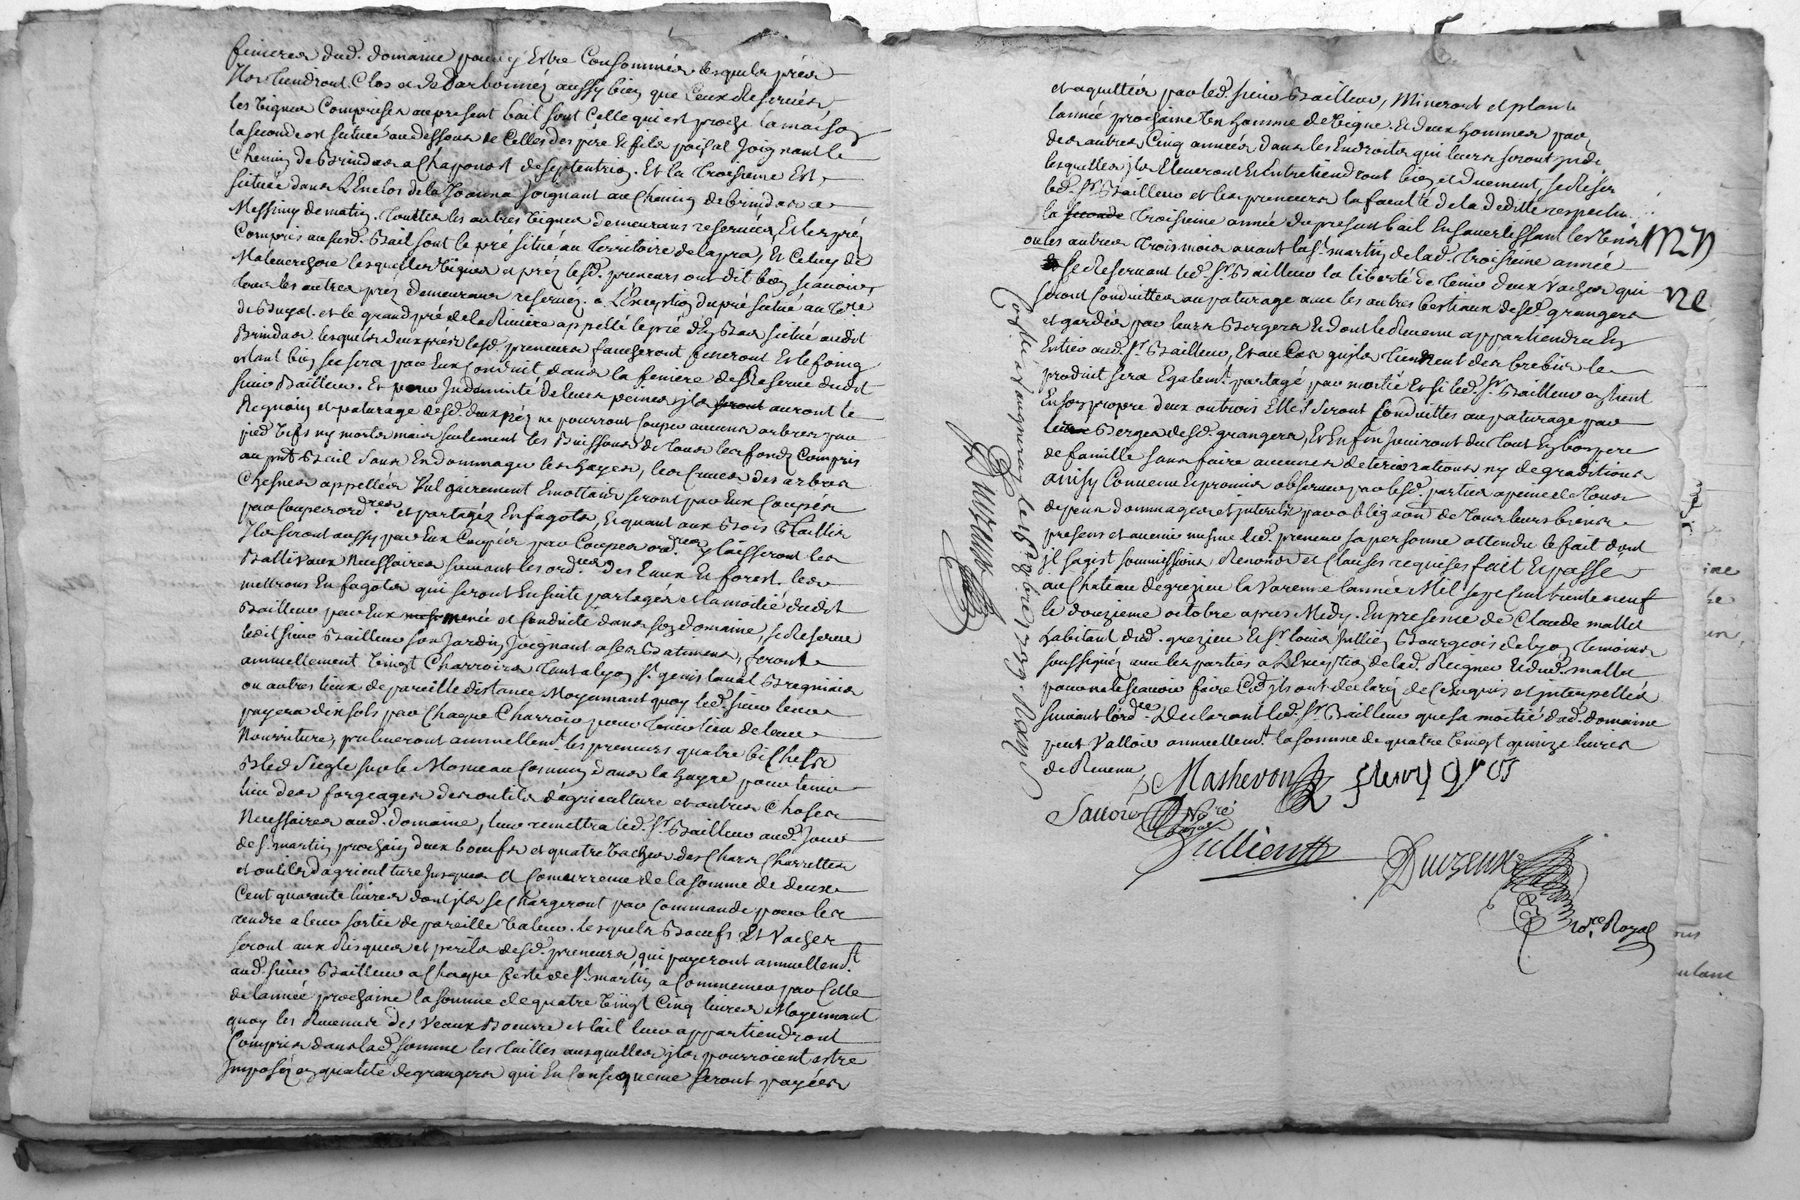 fenieres dud. domaine pour y Estre Consommés lesquels prés
Ils tiendront Clos et Barbonnés aussy bien que Ceux Reservés,
les Vignes Comprises au present bail sont Celle qui est proche la maison
la seconde est située au dessous de Celles des pere et fils joignant le
Chemin de Brindas a Chaponost de septentrion. Et la troisieme Est
située dans L'Enclos de la Joanna Joignant au Chemin de brindas a
Messimy de matin. Touttes les autres Vignes demeurans reservées Et les prés
Compris au susd. Bail sont le pré situé au territoire de la pra, Et Celuy de
Malevarchere lesquelles Vignes et prés lesd. preneurs ont dit bien scavoir
tous les autres prez demeurans reservez. a L'Exception du pré situé au tre
du Buyat. et le grand pré de la Riviere appellé le pré d'En Bas situé audit
Brindas. lesquels deux prés lesd. preneurs faucheront feneront Et le foing
estant bien sec sera par Eux Conduit dans la feniere de Reserve dudit
sieur Bailleur. Et pour Indemnité de leurs peines jls seront auront le
Regnoin et paturage desd. deux prés ne pourront Couper aucuns arbres par
pied vifs ny morts mais seulement les Buissons de tous les fonds Compris
au pnt Bail sans Endommager les hayes, les Cimes des arbres
Chesnes appellés Vulgairement Emottais seront par Eux Coupés
par Coupes ordres et partagés En fagots, Et quant aux Bois Taillis
Ils seront aussy par Eux Coupés par Coupes ord.res y laisseront les
Ballivaux Necessaires suivant les ord.ces Des Eaux Et forest. les
mettrons En fagots qui seront Ensuite partagés et la moitié dudit
Bailleur par Eux menée et Conduite dans son domaine, se Reserve
ledit sieur Bailleur son Jardin Joignant a ses batimens, feront
annuellement Vingt Charrois tant a lyon St. genis laval Bregniais
ou autres lieux de pareille distance Moyennant quoy led. sieur leur
payera dix sols par Chaque Charroir pour tenir lieu de leur
Nourriture, preleveront annuellemt les preneurs quatre bichets
Bled seigle sur le Monceau Commun dans la Grange pour tenir
lieu des forgeages des outils d'agriculture et autres Choses
Necessaires aud. domaine, leur remettra led. Sr. Bailleur aud. Jour
de St. martin prochain deux boeufs et quatre Vaches des Chars Charrettes
et outils d'agriculture Jusques A Concurrence de la somme de deux
Cent quarante livres dont jls se Chargeront par Commande pour les
rendre a leur sortie de pareille Valeur. lesquels Boeufs Et Vaches
seront aux Risques et perils desd. preneurs, qui payeront annuellemt.
aud. sieur Bailleur a Chaque feste de St. martin a Commencer par Celle
de l'année prochaine la somme de quatre Vingt Cinq livres Moyennant
quoy les Revenus des Veaux Beurre et lait leur appartiendront
Compris dans lad. somme les tailles ausquelles jls pourroient estre
Imposés en qualité de grangers qui En Consequence seront payées
et aquittées par led. sieur Bailleur, Mineront et planteront
l'année prochaine Un homme de Vigne. Et deux hommes par
des autres Cinq années dans les Endroits qui leurs seront jndi
lesquelles jls Eleveront Et Entretiendront bien et duement, se Reserv
led. Sr. Bailleur et les preneurs la faculté de la deditte respective
la seconde troisieme année du present bail En s'avertissant
ou les autres trois mois avant la St. martin de lad. troisieme année
se Reservant led. Sr. Bailleur la liberté de tenir deux vaches qui
seront Conduittes au paturage avec les autres bestiaux desd. grangers
et gardées par leurs Bergers Et dont le Revenu appartiendra En
Entier aud. Sr. Bailleur, Et au Cas qu'jls tiennent des brebis le
produit sera Egalemt. partagé par moitié Et si led. Sr. Bailleur en tient
En son propre deux ou trois Elles seront Conduittes au paturage par
leurs Berger desd. grangers, Et Enfin Jouiront du tout En bon pere
de famille sans faire aucunes deteriorations ny degraditions
ainsy Convenu Et promis observer par lesd. parties a peine de tous
depens dommages et jnterets par obligaon de tous leurs biens
presens et avenir mesme led. preneur sa personne attendu le fait dont
jl s'agist soumissions Renons et Clauses requises fait Et passé
au Chateau de grezieu la Varenne l'année Mil sept Cent trente neuf
le douzieme octobre apres Midy. En presence de Claude mallet
habitant dud. grezieu Et Sr. louis Jullien Bourgeois de lyon temoins
soussignés avec les parties a L'Exception de lad. Reigner Et dud. mallet
pour ne le scavoir faire Ce qu'jls ont declaré de Ce Enquis et jnterpellés
suivant l'ord.ce. Declarant led. Sr. Bailleur que sa moitié dud. domaine
peut Valloir annuellemt. la somme de quatre Vingt quinze livres
de Revenu
Mathevon fleury gros
Jullien
Duizeux
no.re Royal
Con.lé a Vaugneray le 8bre 1739.
Duizeux